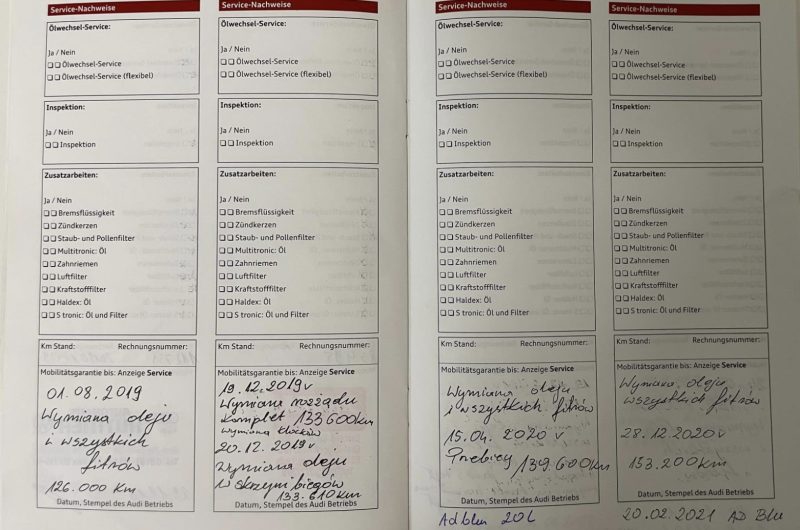 Service-Nachweise
Ölwechsel-Service:
Ja / Nein
Ölwechsel-Service
Ölwechsel-Service (flexibel)
Inspektion:
Ja / Nein
Inspektion
Zusatzarbeiten:
Ja / Nein
Bremsflüssigkeit
Zündkerzen
Staub- und Pollenfilter
Multitronic: Öl
Zahnriemen
Luftfilter
Kraftstofffilter
Haldex: Öl
S tronic: Öl und Filter
Km Stand: Rechnungsnummer:
Mobilitätsgarantie bis: Anzeige Service
01.08.2019
Wymiana oleju
i wszystkich
filtrów
126.000 Km
Datum, Stempel des Audi Betriebs
Service-Nachweise
Ölwechsel-Service:
Ja / Nein
Ölwechsel-Service
Ölwechsel-Service (flexibel)
Inspektion:
Ja / Nein
Inspektion
Zusatzarbeiten:
Ja / Nein
Bremsflüssigkeit
Zündkerzen
Staub- und Pollenfilter
Multitronic: Öl
Zahnriemen
Luftfilter
Kraftstofffilter
Haldex: Öl
S tronic: Öl und Filter
Km Stand: Rechnungsnummer:
Mobilitätsgarantie bis: Anzeige Service
19.12.2019 r
Wymiana rozrządu
komplet 133 600 km
wymiana klocków
20.12.2019 r
Wymiana oleju
w skrzyni biegów
133.610 km
Datum, Stempel des Audi Betriebs
Service-Nachweise
Ölwechsel-Service:
Ja / Nein
Ölwechsel-Service
Ölwechsel-Service (flexibel)
Inspektion:
Ja / Nein
Inspektion
Zusatzarbeiten:
Ja / Nein
Bremsflüssigkeit
Zündkerzen
Staub- und Pollenfilter
Multitronic: Öl
Zahnriemen
Luftfilter
Kraftstofffilter
Haldex: Öl
S tronic: Öl und Filter
Km Stand: Rechnungsnummer:
Mobilitätsgarantie bis: Anzeige Service
Wymiana oleju
i wszystkich filtrów
15.04.2020 r
139.600 km
Datum, Stempel des Audi Betriebs
Adblu 20L
Service-Nachweise
Ölwechsel-Service:
Ja / Nein
Ölwechsel-Service
Ölwechsel-Service (flexibel)
Inspektion:
Ja / Nein
Inspektion
Zusatzarbeiten:
Ja / Nein
Bremsflüssigkeit
Zündkerzen
Staub- und Pollenfilter
Multitronic: Öl
Zahnriemen
Luftfilter
Kraftstofffilter
Haldex: Öl
S tronic: Öl und Filter
Km Stand: Rechnungsnummer:
Mobilitätsgarantie bis: Anzeige Service
Wymiana oleju
wszystkich filtrów
28.12.2020 r
153.200 km
Datum, Stempel des Audi Betriebs
20.02.2021 AD Blu